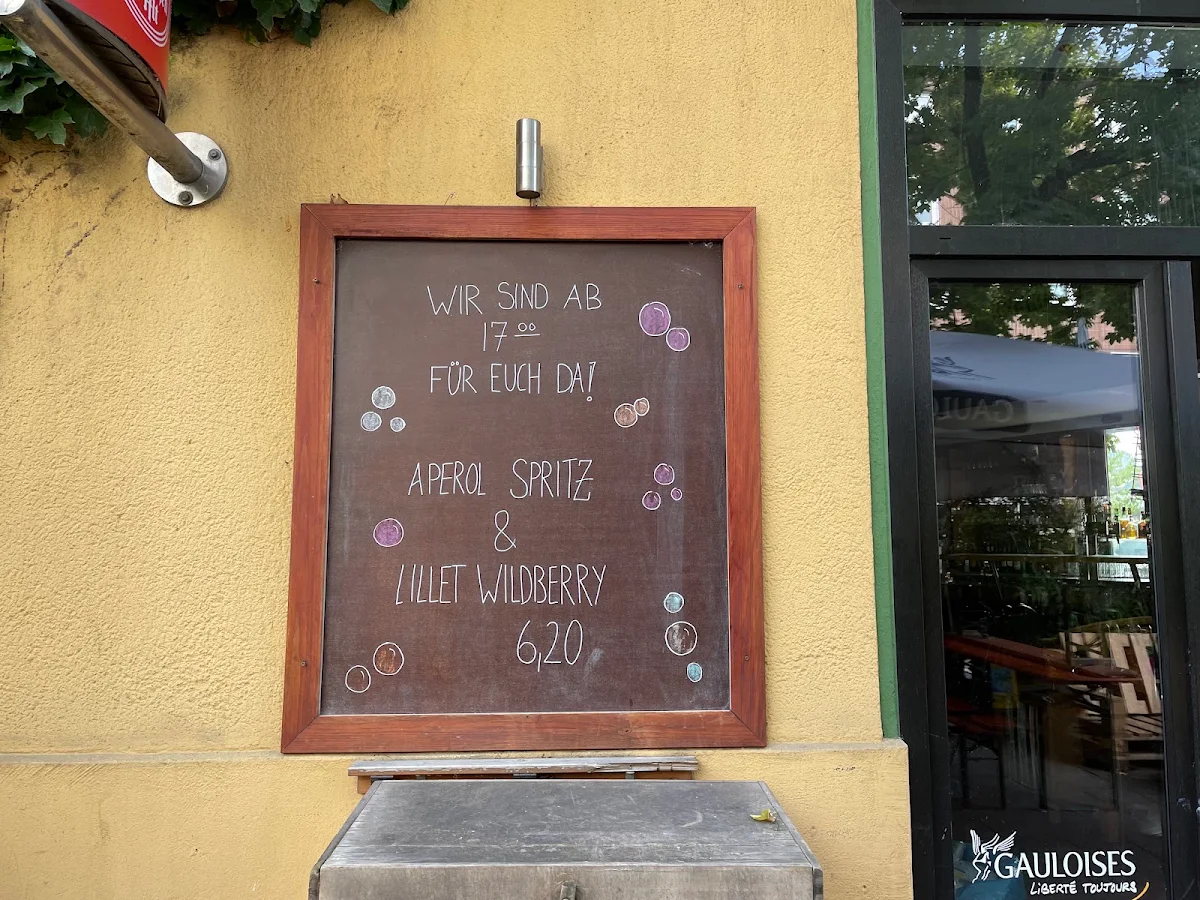 WIR SIND AB
17 00
FÜR EUCH DA!
APEROL SPRITZ
&
LILLET WILDBERRY
6,20
GAULOISES
LIBERTÉ TOUJOURS